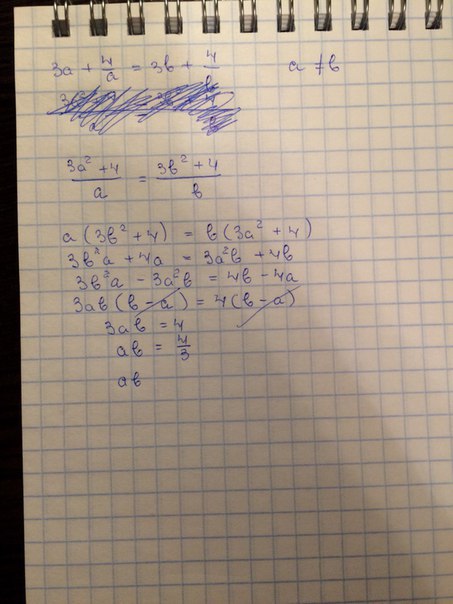 3a + 4/a = 3b + 4/b a ≠ b
(3a² + 4)/a = (3b² + 4)/b
a (3b² + 4) = b (3a² + 4)
3b²a + 4a = 3a²b + 4b
3b²a - 3a²b = 4b - 4a
3ab (b - a) = 4 (b - a)
3ab = 4
ab = 4/3
ab